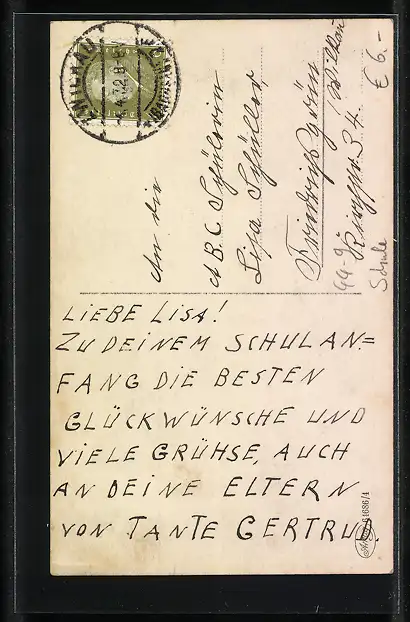 WILKAU
-6.4.32.8-
An die
ABC Schülerin
Lisa Schüller
Friedrichsgrün
/Wilkau
Kirchstr 34.
€ 6.-
Schule
LIEBE LISA!
ZU DEINEM SCHULAN=
FANG DIE BESTEN
GLÜCKWÜNSCHE UND
VIELE GRÜHSE, AUCH
AN DEINE ELTERN
VON TANTE GERTRUD.